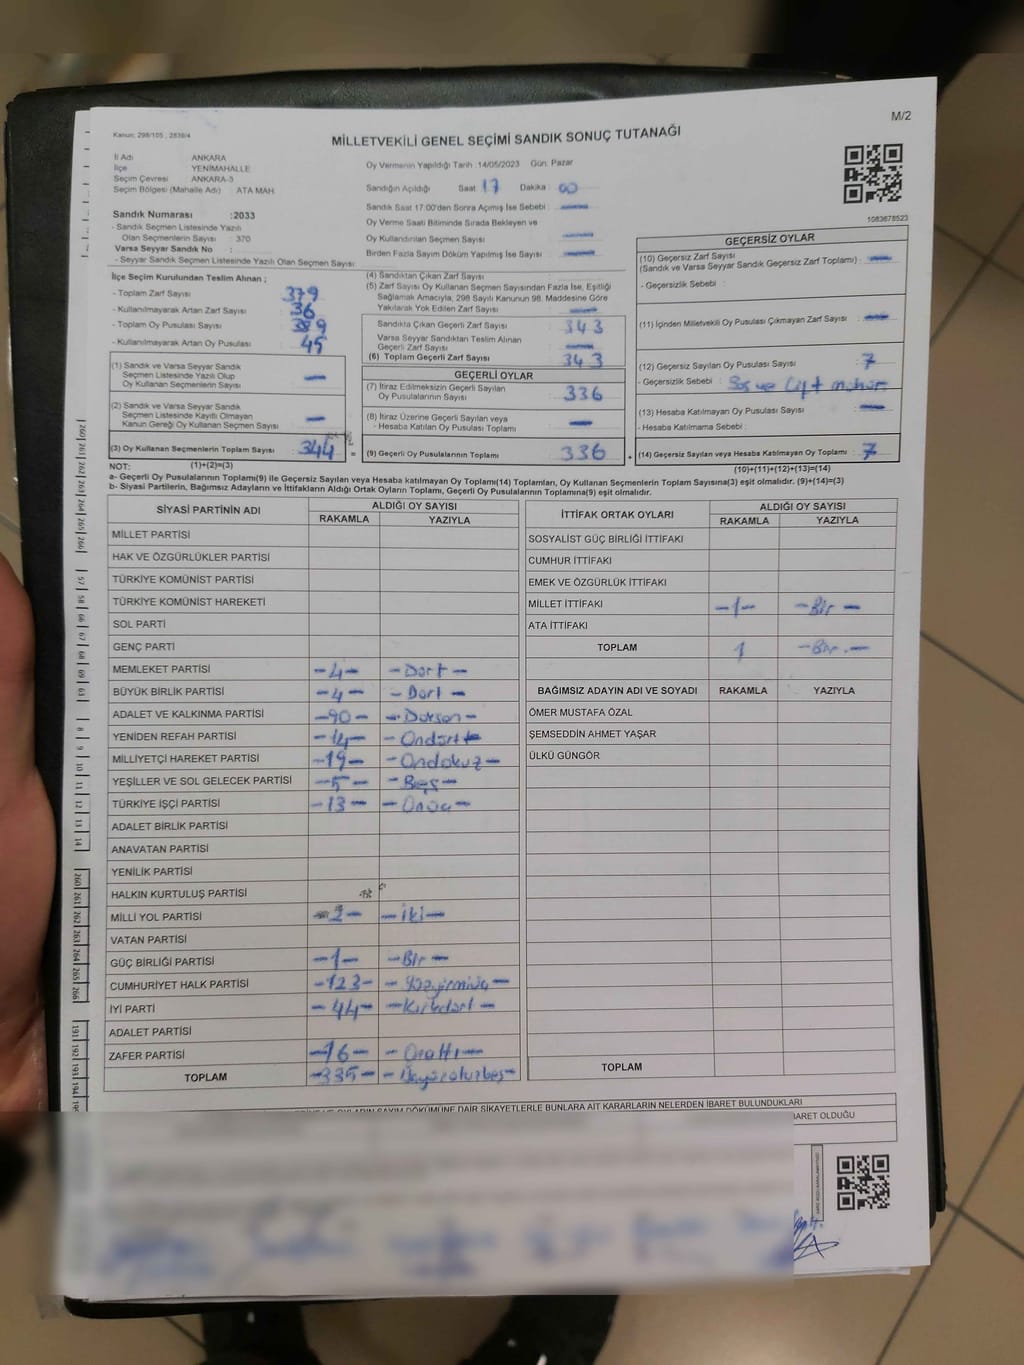 M/2
Kanun: 298/105 , 2839/4
MİLLETVEKİLİ GENEL SEÇİMİ SANDIK SONUÇ TUTANAĞI
İl Adı ANKARA
İlçe YENİMAHALLE
Seçim Çevresi ANKARA-3
Seçim Bölgesi (Mahalle Adı) ATA MAH.
Sandık Numarası :2033
- Sandık Seçmen Listesinde Yazılı
Olan Seçmenlerin Sayısı : 370
Varsa Seyyar Sandık No :
- Seyyar Sandık Seçmen Listesinde Yazılı Olan Seçmen Sayısı:
Oy Vermenin Yapıldığı Tarih :14/05/2023 Gün: Pazar
Sandığın Açıldığı Saat 17 Dakika : 00
Sandık Saat 17:00'den Sonra Açılmış İse Sebebi :
Oy Verme Saati Bitiminde Sırada Bekleyen ve
Oy Kullandırılan Seçmen Sayısı :
Birden Fazla Sayım Döküm Yapılmış İse Sayısı :
1083678523
İlçe Seçim Kurulundan Teslim Alınan ;
- Toplam Zarf Sayısı : 379
- Kullanılmayarak Artan Zarf Sayısı : 36
- Toplam Oy Pusulası Sayısı :
- Kullanılmayarak Artan Oy Pusulası : 45
(1) Sandık ve Varsa Seyyar Sandık
Seçmen Listesinde Yazılı Olup
Oy Kullanan Seçmenlerin Sayısı :
(2) Sandık ve Varsa Seyyar Sandık
Seçmen Listesinde Kayıtlı Olmayan
Kanun Gereği Oy Kullanan Seçmen Sayısı :
(3) Oy Kullanan Seçmenlerin Toplam Sayısı : 344 =
(4) Sandıktan Çıkan Zarf Sayısı :
(5) Zarf Sayısı Oy Kullanan Seçmen Sayısından Fazla İse, Eşitliği
Sağlamak Amacıyla, 298 Sayılı Kanunun 98. Maddesine Göre
Yakılarak Yok Edilen Zarf Sayısı :
Sandıkta Çıkan Geçerli Zarf Sayısı : 343
Varsa Seyyar Sandıktan Teslim Alınan
Geçerli Zarf Sayısı :
(6) Toplam Geçerli Zarf Sayısı : 343
GEÇERLİ OYLAR
(7) İtiraz Edilmeksizin Geçerli Sayılan
Oy Pusulalarının Sayısı : 336
(8) İtiraz Üzerine Geçerli Sayılan veya
- Hesaba Katılan Oy Pusulası Toplamı :
(9) Geçerli Oy Pusulalarının Toplamı : 336 +
GEÇERSİZ OYLAR
(10) Geçersiz Zarf Sayısı :
(Sandık ve Varsa Seyyar Sandık Geçersiz Zarf Toplamı)
- Geçersizlik Sebebi :
(11) İçinden Milletvekili Oy Pusulası Çıkmayan Zarf Sayısı :
(12) Geçersiz Sayılan Oy Pusulası Sayısı : 7
- Geçersizlik Sebebi : ve çift mühür
(13) Hesaba Katılmayan Oy Pusulası Sayısı :
- Hesaba Katılmama Sebebi :
(14) Geçersiz Sayılan veya Hesaba Katılmayan Oy Toplamı : 7
NOT: (1)+(2)=(3)
(10)+(11)+(12)+(13)=(14)
a- Geçerli Oy Pusulalarının Toplamı(9) ile Geçersiz Sayılan veya Hesaba katılmayan Oy Toplamı(14) Toplamları, Oy Kullanan Seçmenlerin Toplam Sayısına(3) eşit olmalıdır. (9)+(14)=(3)
b- Siyasi Partilerin, Bağımsız Adayların ve İttifakların Aldığı Ortak Oyların Toplamı, Geçerli Oy Pusulalarının Toplamına(9) eşit olmalıdır.
SİYASİ PARTİNİN ADI ALDIĞI OY SAYISI
RAKAMLA YAZIYLA
MİLLET PARTİSİ
HAK VE ÖZGÜRLÜKLER PARTİSİ
TÜRKİYE KOMÜNİST PARTİSİ
TÜRKİYE KOMÜNİST HAREKETİ
SOL PARTİ
GENÇ PARTİ
MEMLEKET PARTİSİ -4- -Dört-
BÜYÜK BİRLİK PARTİSİ -4- -Dört-
ADALET VE KALKINMA PARTİSİ -90- -Doksan-
YENİDEN REFAH PARTİSİ -14- -Ondört-
MİLLİYETÇİ HAREKET PARTİSİ -19- -Ondokuz-
YEŞİLLER VE SOL GELECEK PARTİSİ -5- -Beş-
TÜRKİYE İŞÇİ PARTİSİ -13- -Onüç-
ADALET BİRLİK PARTİSİ
ANAVATAN PARTİSİ
YENİLİK PARTİSİ
HALKIN KURTULUŞ PARTİSİ
MİLLİ YOL PARTİSİ -2- -İki-
VATAN PARTİSİ
GÜÇ BİRLİĞİ PARTİSİ -1- -Bir-
CUMHURİYET HALK PARTİSİ -123- -Yüzyirmiüç-
İYİ PARTİ -44- -Kırkdört-
ADALET PARTİSİ
ZAFER PARTİSİ -16- -Onaltı-
TOPLAM -335- -Üçyüzotuzbeş-
İTTİFAK ORTAK OYLARI ALDIĞI OY SAYISI
RAKAMLA YAZIYLA
SOSYALİST GÜÇ BİRLİĞİ İTTİFAKI
CUMHUR İTTİFAKI
EMEK VE ÖZGÜRLÜK İTTİFAKI
MİLLET İTTİFAKI -1- -Bir-
ATA İTTİFAKI
TOPLAM 1 -Bir-
BAĞIMSIZ ADAYIN ADI VE SOYADI RAKAMLA YAZIYLA
ÖMER MUSTAFA ÖZAL
ŞEMSEDDİN AHMET YAŞAR
ÜLKÜ GÜNGÖR
TOPLAM
OYLARIN SAYIM DÖKÜMÜNE DAİR ŞİKAYETLERLE BUNLARA AİT KARARLARIN NELERDEN İBARET BULUNDUKLARI
BARET OLDUĞU